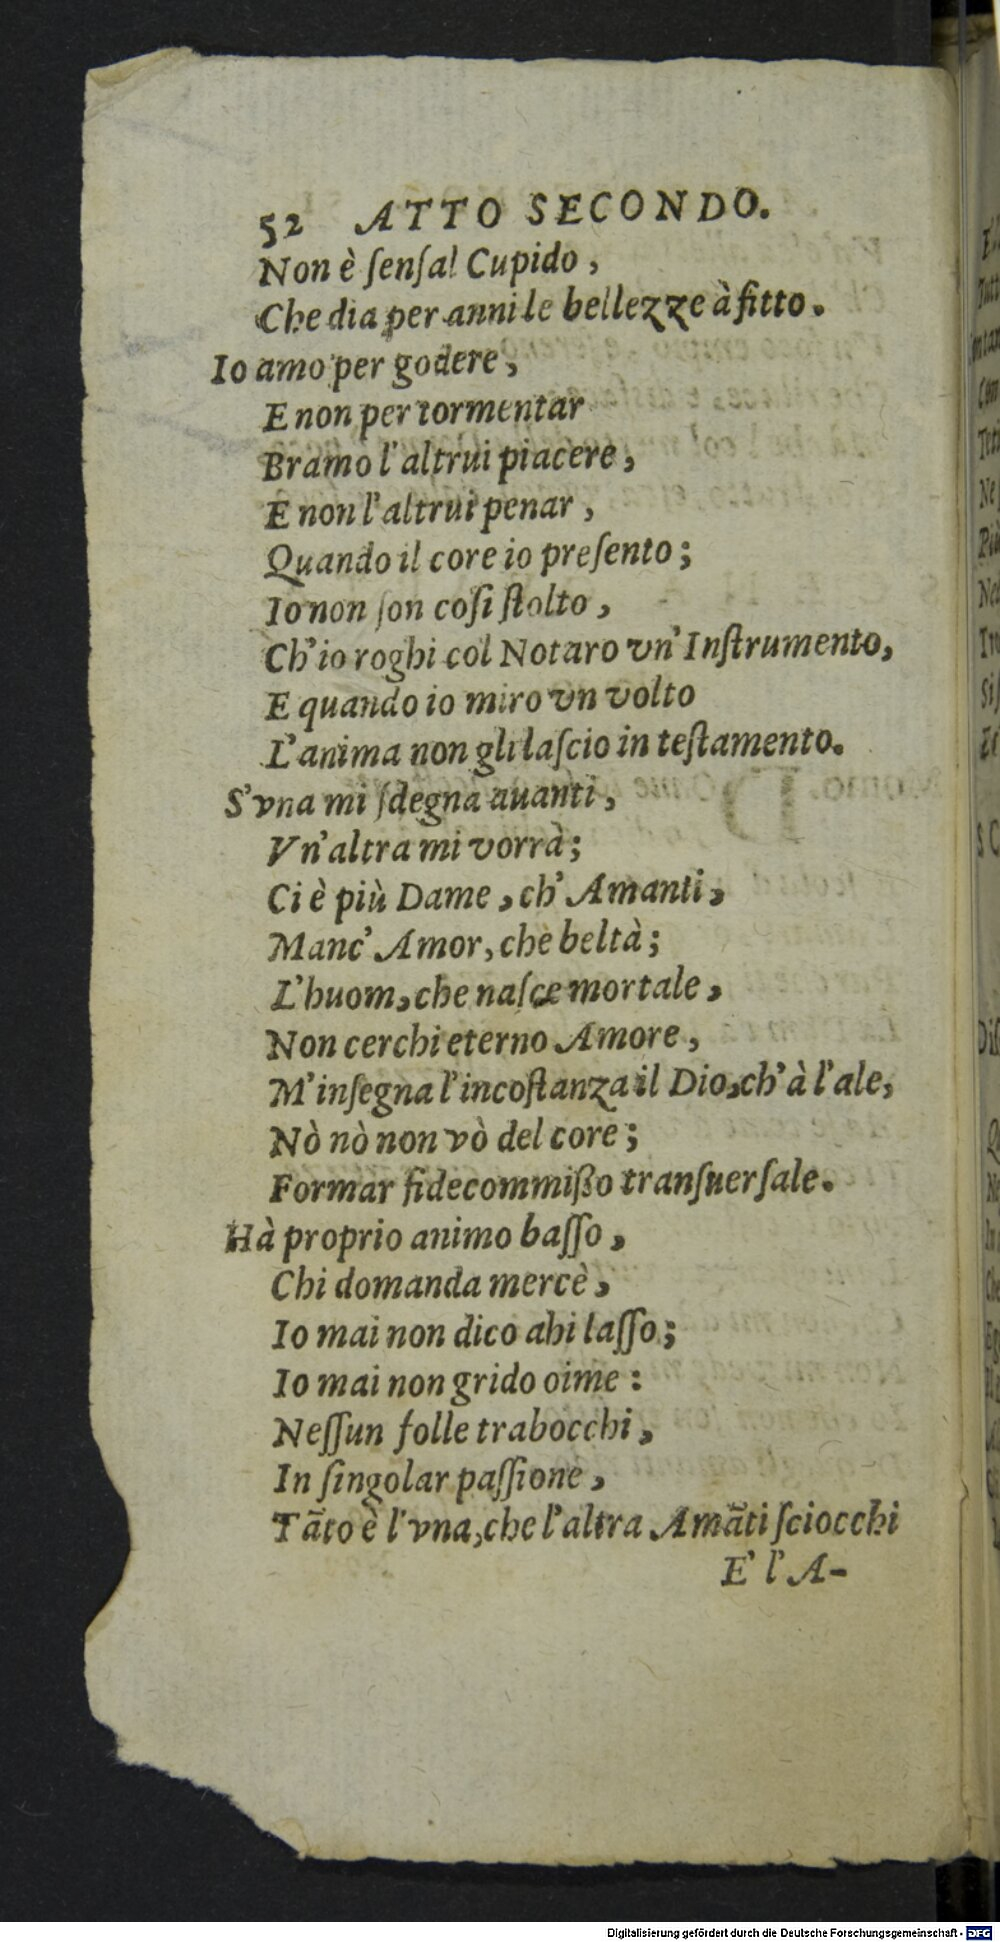 52 ATTO SECONDO.
Non è ſenſal Cupido,
Che dia per anni le bellezze à fitto.
Io amo per godere,
E non per tormentar
Bramo l'altrui piacere,
E non l'altrui penar,
Quando il core io preſento;
Io non ſon coſi ſtolto,
Ch'io roghi col Notaro vn'Inſtrumento,
E quando io miro vn volto
L'anima non gli laſcio in teſtamento.
S'vna mi ſdegna auanti,
Vn'altra mi vorrà;
Ci è più Dame, ch'Amanti,
Manc'Amor, che beltà;
L'huom, che naſce mortale,
Non cerchi eterno Amore,
M'inſegna l'incoſtanza il Dio, ch'à l'ale,
Nò nò non vò del core;
Formar fidecommißo tranſuerſale.
Hà proprio animo baſſo,
Chi domanda mercè,
Io mai non dico ahi laſſo;
Io mai non grido oime:
Neſſun folle trabocchi,
In ſingolar paſſione,
Tãto è l'vna, che l'altra Amãti ſciocchi
E' l'A-
Digitalisierung gefördert durch die Deutsche Forschungsgemeinschaft - DFG